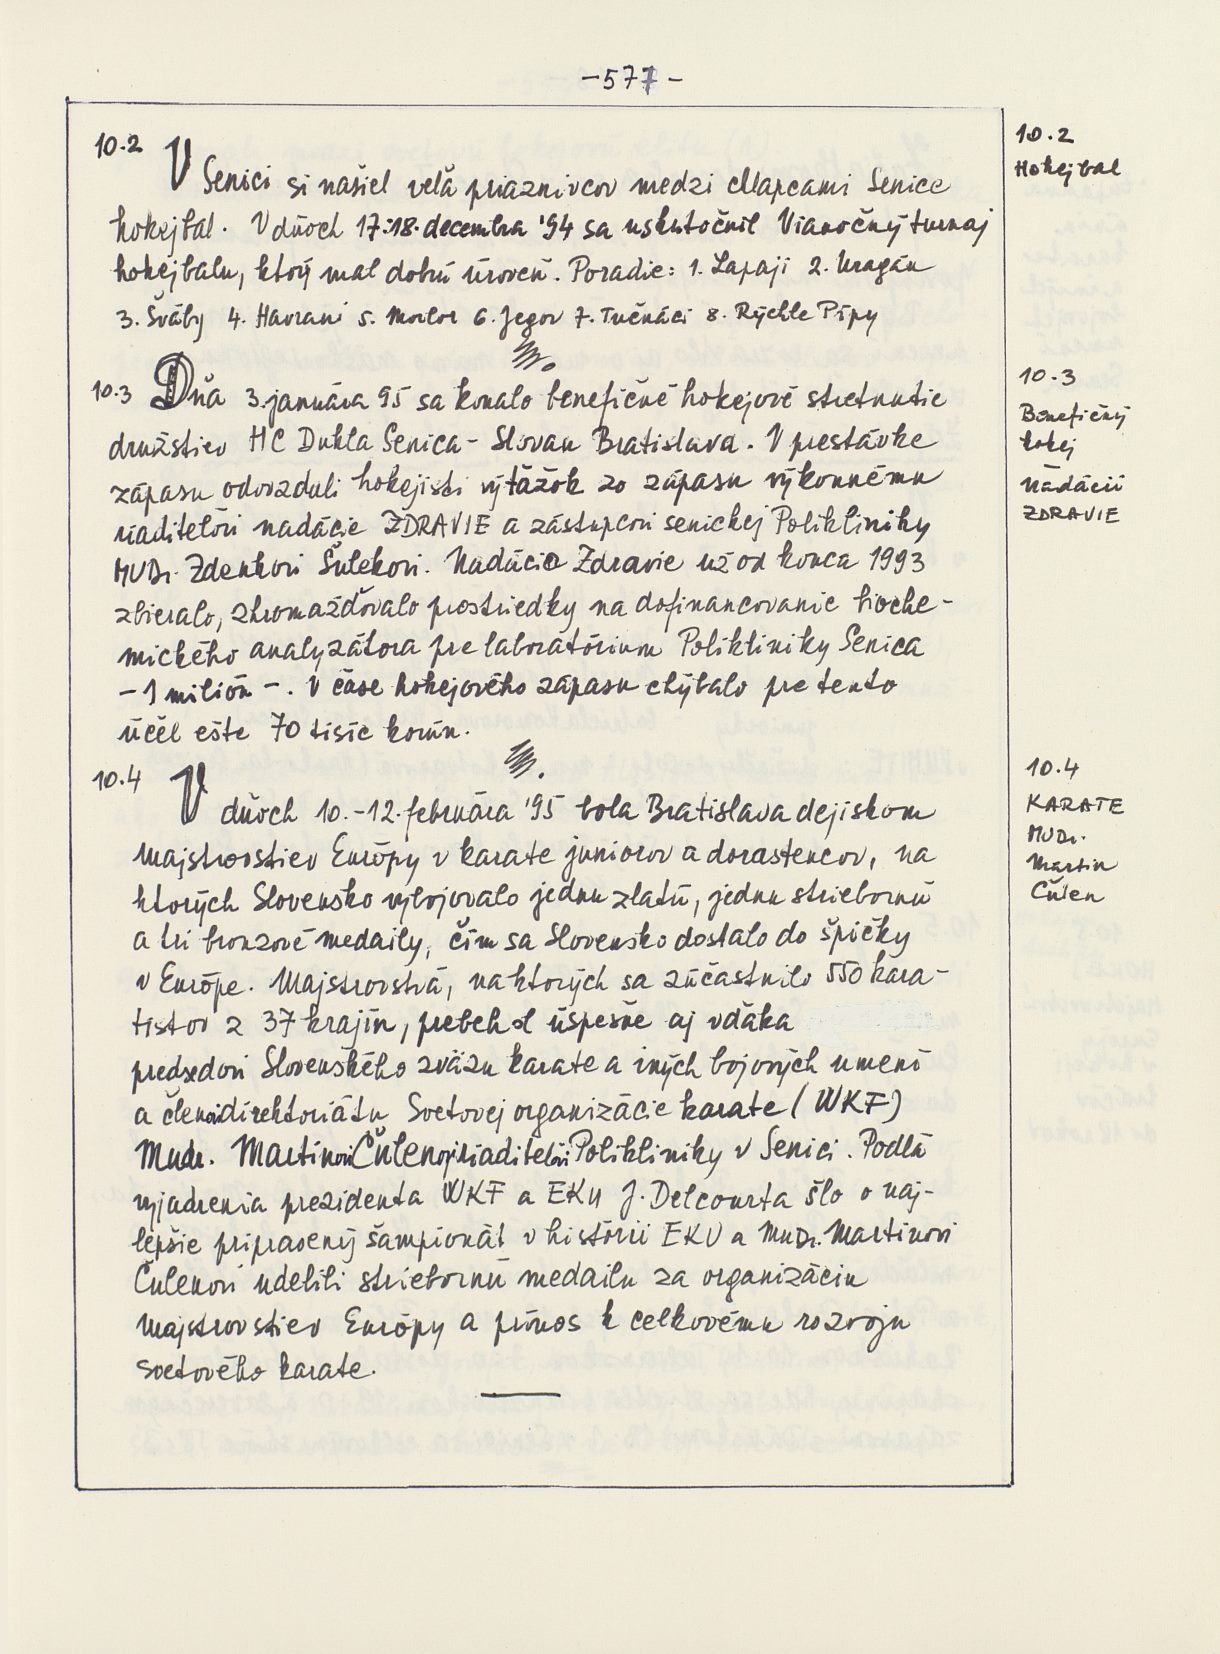 -577-
10.2
V
Senici si našiel veľa priaznivcov medzi chlapcami Senice
hokejbal. V dňoch 17.-18. decembra '94 sa uskutočnil Vianočný turnaj
hokejbalu, ktorý mal dobrú úroveň. Poradie: 1. Lapaji 2. Uragán
3. Šváby 4. Havrani 5. Motor 6. Jegov 7. Tučniaci 8. Rýchle Pípy
10.3 Dňa 3. januára 95 sa konalo benefičné hokejové stretnutie
družstiev HC Dukla Senica - Slovan Bratislava. V prestávke
zápasu odovzdali hokejisti výťažok zo zápasu výkonnému
riaditeľovi nadácie ZDRAVIE a zástupcovi senickej Polikliniky
MUDr. Zdenkovi Šulekovi. Nadácia Zdravie už od konca 1993
zbieralo, zhromažďovalo prostriedky na dofinancovanie bioche-
mického analyzátora pre laboratórium Polikliniky Senica
- 1 milión -. V čase hokejového zápasu chýbalo pre tento
účel ešte 70 tisíc korún.
10.4 V
dňoch 10.-12. februára '95 bola Bratislava dejiskom
Majstrovstiev Európy v karate juniorov a dorastencov, na
ktorých Slovensko vybojovalo jednu zlatú, jednu striebornú
a tri bronzové medaily, čím sa Slovensko dostalo do špičky
v Európe. Majstrovstvá, na ktorých sa zúčastnilo 550 kara-
tistov z 37 krajín, prebehol úspešne aj vďaka
predsedovi Slovenského zväzu karate a iných bojových umení
a členovi direktoriátu Svetovej organizácie karate (WKF)
Mudr. Martinovi Čulenovi, riaditeľovi Polikliniky v Senici. Podľa
vyjadrenia prezidenta WKF a EKU J. Delcourta šlo o naj-
lepšie pripravený šampionát v histórii EKU a MUDr. Martinovi
Čulenovi udelili striebornú medailu za organizáciu
Majstrovstiev Európy a prínos k celkovému rozvoju
svetového karate.
10.2
Hokejbal
10.3
Benefičný
hokej
Nadácii
ZDRAVIE
10.4
KARATE
MUDr.
Martin
Čulen